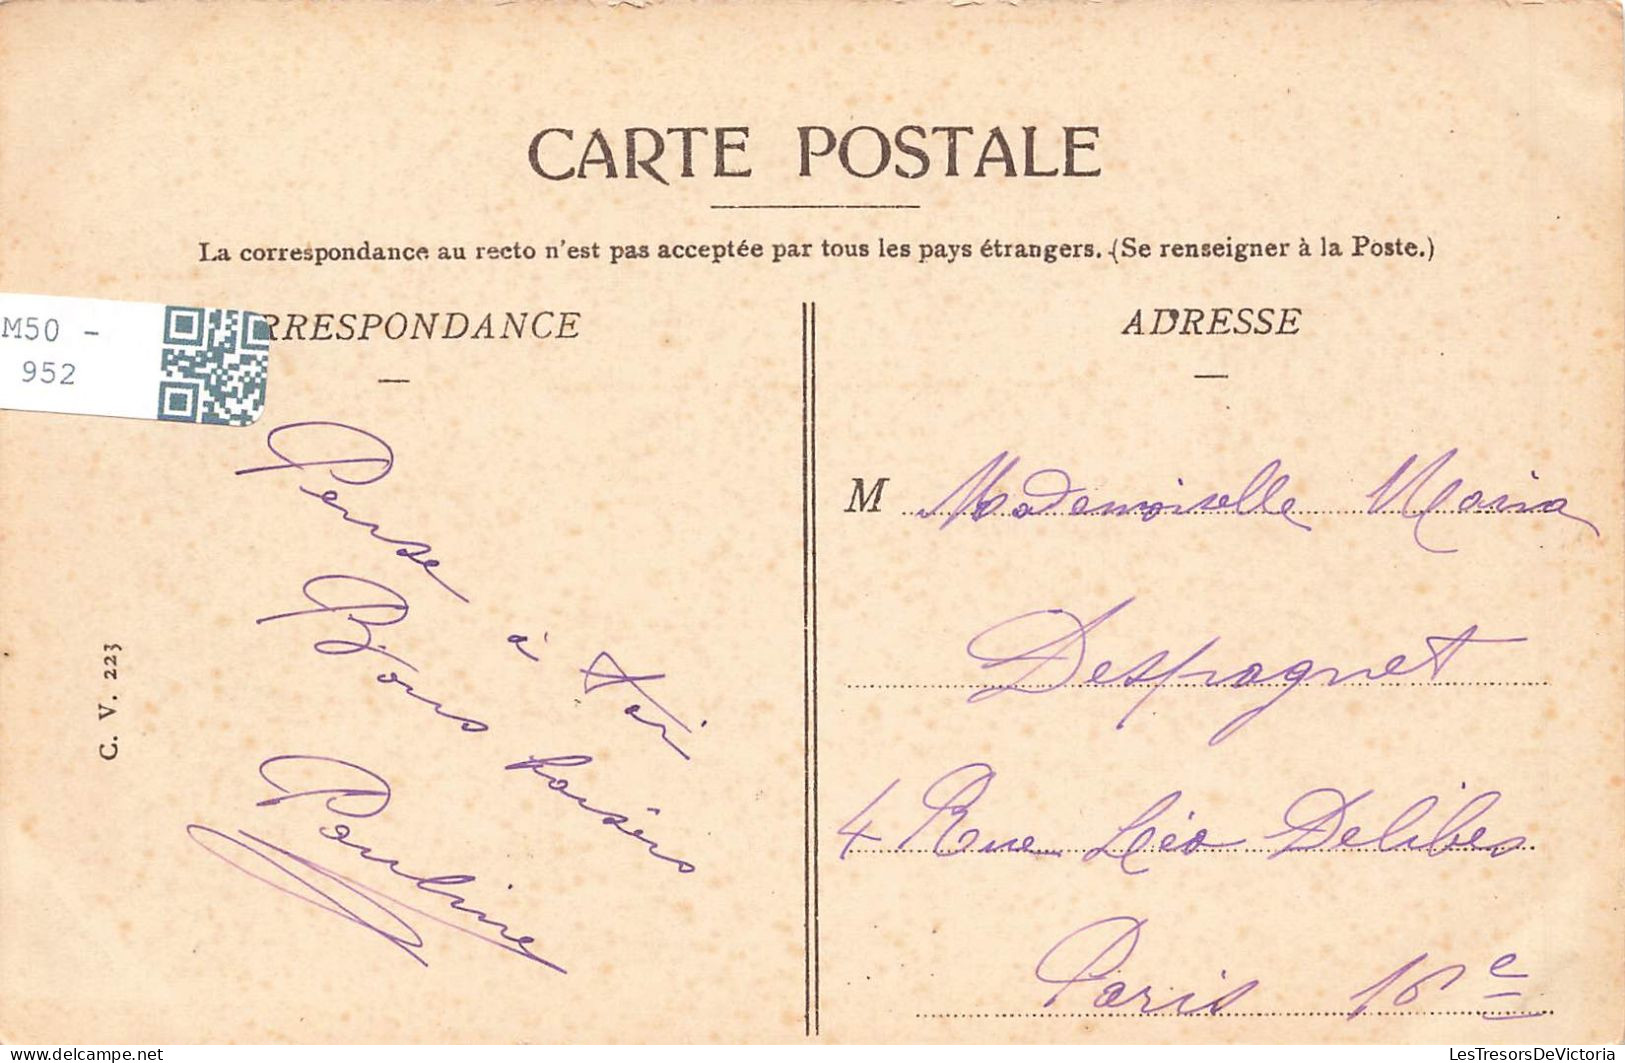 CARTE POSTALE
La correspondance au recto n'est pas acceptée par tous les pays étrangers. (Se renseigner à la Poste.)
M50 -
952
RRESPONDANCE
Pense à toi
Bons baisers
Pauline
C. V. 223
ADRESSE
M Mademoiselle Maria
Despagnet
4 Rue Léo Delibes
Paris 16e
LesTresorsDeVictoria